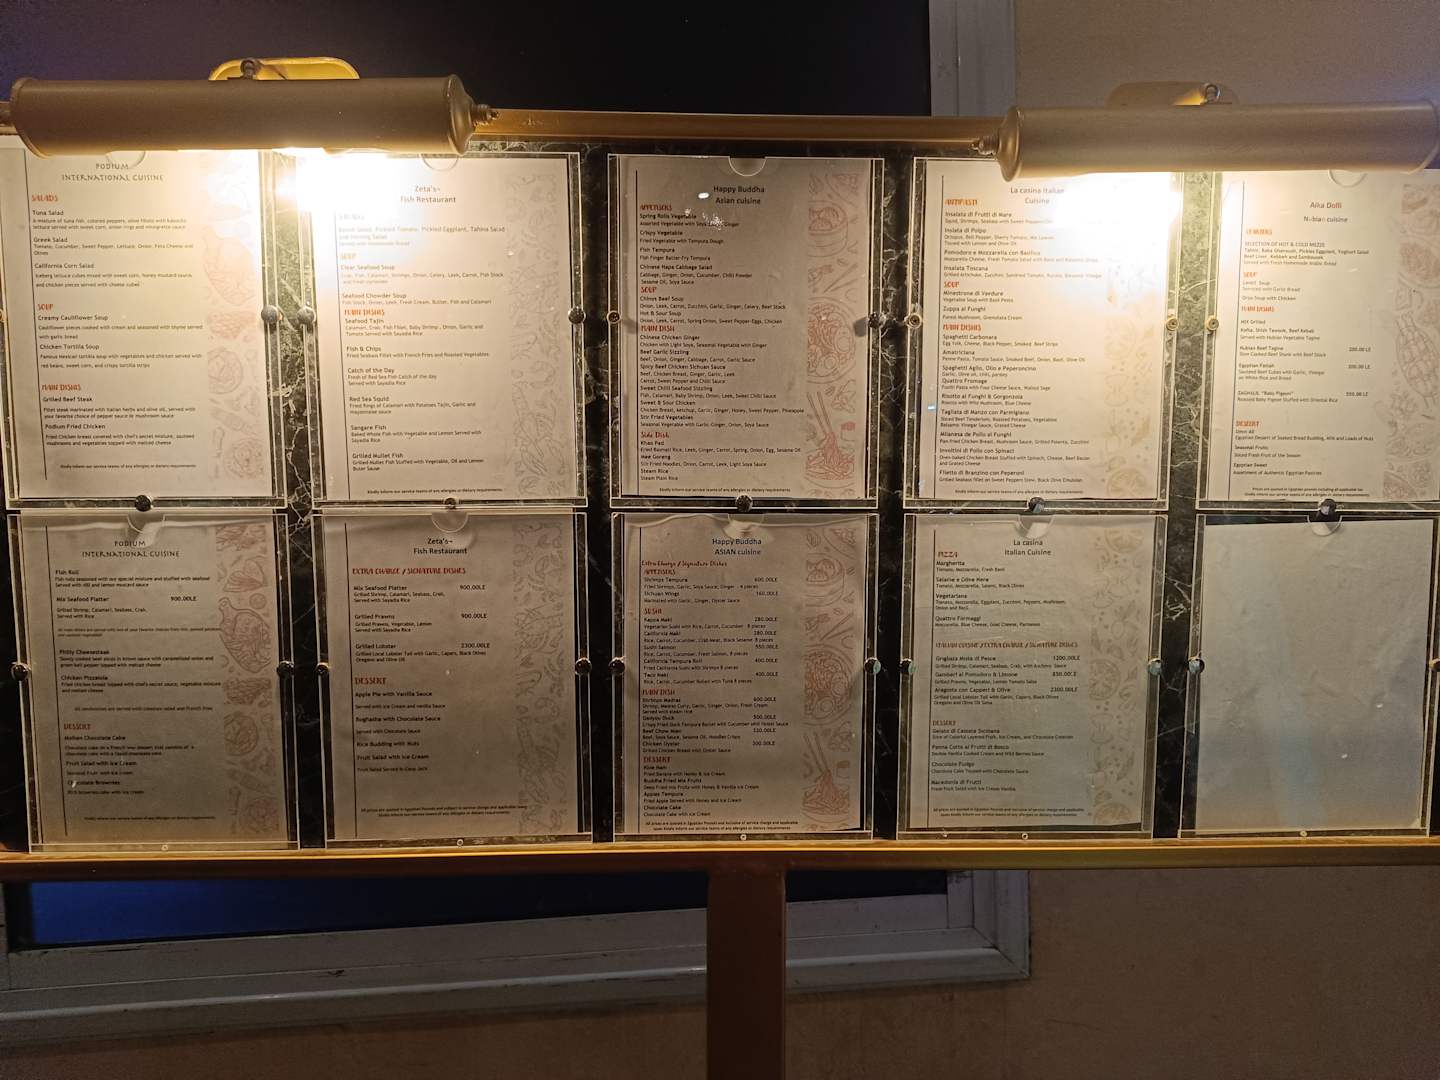 PODIUM
INTERNATIONAL CUISINE
SALADS
Tuna Salad
A mixture of tuna fish, colored peppers, olive fillets with kalocha
lettuce served with sweet corn, onion rings and vinaigrette sauce
Greek Salad
Tomato, Cucumber, Sweet Pepper, Lettuce, Onion, Feta Cheese and
Olives
California Corn Salad
Iceberg lettuce cubes mixed with sweet corn, honey mustard sauce
and chicken pieces served with cheese cubes
SOUP
Creamy Cauliflower Soup
Cauliflower pieces cooked with cream and seasoned with thyme served
with garlic bread
Chicken Tortilla Soup
Famous Mexican tortilla soup with vegetables and chicken served with
red beans, sweet corn, and crispy tortilla strips
MAIN DISHES
Grilled Beef Steak
Fillet steak marinated with Italian herbs and olive oil, served with
your favorite choice of pepper sauce or mushroom sauce
Podium Fried Chicken
Fried Chicken breast covered with chef's secret mixture, sauteed
mushrooms and vegetables topped with melted cheese
Kindly inform our service teams of any allergies or dietary requirements
Zeta's~
Fish Restaurant
SALADS
Salad, Pickled Tomato, Pickled Eggplant, Tahina Salad
and Herring Salad
Served with Homemade Bread
SOUP
Clear Seafood Soup
Crab, Fish, Calamari, Shrimps, Onion, Celery, Leek, Carrot, Fish Stock
Seafood Chowder Soup
Fish Stock, Onion, Leek, Fresh Cream, Butter, Fish and Calamari
MAIN DISHES
Seafood Tajin
Calamari, Crab, Fish Fillet, Baby Shrimp, Onion, Garlic and
Tomato Served with Sayadia Rice
Fish & Chips
Fried Seabass Fillet with French Fries and Roasted Vegetables
Catch of the Day
Fresh of Red Sea Fish Catch of the day
Served with Sayadia Rice
Red Sea Squid
Fried Rings of Calamari with Potatoes Tajin, Garlic and
mayonnaise sauce
Sangare Fish
Baked Whole Fish with Vegetable and Lemon Served with
Sayadia Rice
Grilled Mullet Fish
Grilled Mullet Fish Stuffed with Vegetable, Oil and Lemon
Butter Sauce
Kindly inform our service teams of any allergies or dietary requirements
Happy Buddha
Asian cuisine
APPETISERS
Spring Rolls Vegetable
Assorted Vegetable with Soya Ginger
Crispy Vegetable
Fried Vegetable with Tempura Dough
Fish Tempura
Fish Finger Batter-Fry Tempura
Chinese Napa Cabbage Salad
Cabbage, Ginger, Onion, Cucumber, Chilli Powder
Sesame Oil, Soya Sauce
SOUP
Chinos Beef Soup
Onion, Leek, Carrot, Zucchini, Garlic, Ginger, Celery, Beef Stock
Hot & Sour Soup
Onion, Leek, Carrot, Spring Onion, Sweet Pepper-Eggs, Chicken
MAIN DISH
Chinese Chicken Ginger
Chicken with Light Soya, Seasonal Vegetable with Ginger
Beef Garlic Sizzling
Beef, Onion, Ginger, Cabbage, Carrot, Garlic Sauce
Spicy Beef Chicken Sichuan Sauce
Beef, Chicken Breast, Ginger, Garlic, Leek
Carrot, Sweet Pepper and Chilli Sauce
Sweet Chilli Seafood Sizzling
Fish, Calamari, Baby Shrimp, Onion, Leek, Sweet Chilli Sauce
Sweet & Sour Chicken
Chicken Breast, ketchup, Garlic, Honey, Sweet Pepper, Pineapple
Stir Fried Vegetables
Seasonal Vegetable with Garlic-Ginger, Onion, Soya Sauce
Side Dish
Khao Pad
Fried Basmati Rice, Leek, Ginger, Carrot, Spring, Onion, Egg, Sesame Oil
Mee Goreng
Stir Fried Noodles, Onion, Carrot, Leek, Light Soya Sauce
Steam Rice
Steam Plain Rice
Kindly inform our service teams of any allergies or dietary requirements
La casina Italian
Cuisine
ANTIPASTI
Insalata di Frutti di Mare
Squid, Shrimps, Seabass with Sweet Pepper
Insalata di Polpo
Octopus, Bell Pepper, Cherry Tomato, Mix Leaves
Tossed with Lemon and Olive Oil
Pomodoro e Mozzarella con Basilico
Mozzarella Cheese, Fresh Tomato Salad with Basil and Balsamic Drops
Insalata Toscana
Grilled Artichoke, Zucchini, Sundried Tomato, Rucola, Balsamic Vinegar
SOUP
Minestrone di Verdure
Vegetable Soup with Basil Pesto
Zuppa al Funghi
Forest Mushroom, Gremolata Cream
MAIN DISHES
Spaghetti Carbonara
Egg Yolk, Cheese, Black Pepper, Smoked Beef Strips
Amatriciana
Penne Pasta, Tomato Sauce, Smoked Beef, Onion, Basil, Olive Oil
Spaghetti Aglio, Olio e Peperoncino
Garlic, Olive oil, chili, parsley
Quattro Fromage
Fusilli Pasta with Four Cheese Sauce, Walnut Sage
Risotto al Funghi & Gorgonzola
Risotto with Wild Mushroom, Blue Cheese
Tagliata di Manzo con Parmigiano
Sliced Beef Tenderloin, Roasted Potatoes, Vegetable
Balsamic Vinegar Sauce, Grated Cheese
Milanese de Pollo al Funghi
Pan-Fried Chicken Breast, Mushroom Sauce, Grilled Polenta, Zucchini
Involtini di Pollo con Spinaci
Oven-baked Chicken Breast Stuffed with Spinach, Cheese, Beef Bacon
and Grated Cheese
Filetto di Branzino con Peperoni
Grilled Seabass fillet on Sweet Peppers Stew, Black Olive Emulsion
Kindly inform our service teams of any allergies or dietary requirements
Aika Dolli
Nubian cuisine
SELECTION OF HOT & COLD MEZZE
Tahini, Baba Ghanoush, Pickles Eggplant, Yoghurt Salad
Beef Liver, Kebbeh and Sambousek
Served with Fresh Homemade Arabic Bread
SOUP
Lentil Soup
Serviced with Garlic Bread
Orzo Soup with Chicken
MAIN DISHES
MIX Grilled
Kofta, Shish Tawook, Beef Kebab
Served with Nubian Vegetable Tagine
Nubian Beef Tagine
Slow Cooked Beef Stock with Beef Stock
Egyptian Fattah
Sautéed Beef Cubes with Garlic, Vinegar
on White Rice and Bread
ZAGHALIL "Baby Pigeon" 550.00 LE
Roasted Baby Pigeon Stuffed with Oriental Rice
DESSERT
Omm Ali
Egyptian Dessert of Soaked Bread Budding, Milk and Loads of Nuts
Seasonal Fruits
Sliced Fresh Fruit of the Season
Egyptian Sweet
Assortment of Authentic Egyptian Pastries
PODIUM
INTERNATIONAL CUISINE
Fish Roll
Fish rolls seasoned with our special mixture and stuffed with seafood
Served with dill and lemon mustard sauce
Mix Seafood Platter 900.00LE
Grilled Shrimp, Calamari, Seabass, Crab,
Served with Rice
Philly Cheesesteak
Slowly cooked beef slices in brown sauce with caramelized onion and
green bell pepper topped with melted cheese
Chicken Pizzaiola
Fried chicken breast topped with chef's secret sauce, vegetable mixture
and melted cheese
All sandwiches are served with coleslaw salad and French fries
DESSERT
Molten Chocolate Cake
Fruit Salad with Ice Cream
Seasonal Fruit with Ice cream
Chocolate Brownies
Rich brownies cake with ice cream
Kindly inform our service teams of any allergies or dietary requirements
Zeta's~
Fish Restaurant
EXTRA CHARGE / SIGNATURE DISHES
Mix Seafood Platter 900.00LE
Grilled Shrimp, Calamari, Seabass, Crab,
Served with Sayadia Rice
Grilled Prawns 900.00LE
Grilled Prawns, Vegetable, Lemon
Served with Sayadia Rice
Grilled Lobster 2300.00LE
Grilled Local Lobster Tail with Garlic, Capers, Black Olives
Oregano and Olive Oil
DESSERT
Apple Pie with Vanilla Sauce
Served with Ice Cream and vanilla Sauce
Boghasha with Chocolate Sauce
Served with Chocolate Sauce
Rice Budding with Nuts
Fruit Salad with Ice Cream
Fruit Salad Served in Coco Jack
All prices are quoted in Egyptian Pounds and subject to service charge and applicable taxes
Kindly inform our service teams of any allergies or dietary requirements
Happy Buddha
ASIAN cuisine
Extra Charge / Signature Dishes
APPETISERS
Shrimps Tempura 600.00LE
Fried Shrimps, Garlic, Soya Sauce, Ginger - 4 pieces
Sichuan Wings 160.00LE
Marinated with Garlic, Ginger, Oyster Sauce
SUSHI
Kappa Maki 280.00LE
Vegetarian Sushi with Rice, Carrot, Cucumber 8 pieces
California Maki 280.00LE
Rice, Carrot, Cucumber, Crab Meat, Black Sesame 8 pieces
Sushi Salmon 550.00LE
Rice, Carrot, Cucumber, Fresh Salmon, 8 pieces
California Tempura Roll 400.00LE
Fried California Sushi with Shrimp 8 pieces
Taco Maki 400.00LE
Rice, Carrot, Cucumber Rolled with Tuna 8 pieces
MAIN DISH
Shrimps Madras 600.00LE
Shrimp, Madras Curry, Garlic, Ginger, Onion, Fresh Cream
Served with steam Rice
Duck 500.00LE
Crispy Fried Duck Tempura Batter with Cucumber and Hoisin Sauce
Beef Chow Mein
Beef, Soya Sauce, Sesame Oil, Noodles Crispy
Chicken Oyster 300.00LE
Grilled Chicken Breast with Oyster Sauce
DESSERT
Fried Banana with Honey & Ice Cream
Buddha Fried Mix Fruits
Deep Fried mix Fruits with Honey & Vanilla Ice Cream
Apples Tempura
Fried Apple Served with Honey and Ice Cream
Chocolate Cake
Chocolate Cake with Ice Cream
All prices are quoted in Egyptian Pounds and inclusive of service charge and applicable
taxes Kindly inform our service teams of any allergies or dietary requirements
La casina
Italian Cuisine
PIZZA
Margherita
Tomato, Mozzarella, Fresh Basil
Salame e Olive Nere
Tomato, Mozzarella, Salami, Black Olives
Vegetariana
Tomato, Mozzarella, Eggplant, Zucchini, Peppers, Mushroom,
Onion and Basil
Quattro Formaggi
Mozzarella, Blue Cheese, Goat Cheese, Parmesan
ITALIAN CUISINE / EXTRA CHARGE / SIGNATURE DISHES
Grigliata Mista di Pesce 1200.00LE
Grilled Shrimp, Calamari, Seabass, Crab, with Anchovy Sauce
Gamberi al Pomodoro & Limone 850.00LE
Grilled Prawns, Vegetable, Lemon Tomato Salsa
Aragosta con Capperi & Olive 2300.00LE
Grilled Local Lobster Tail with Garlic, Capers, Black Olives
Oregano and Olive Oil Salsa
DESSERT
Gelato di Cassata Siciliana
Slice of Colorful Layered Fruit, Ice Cream, and Chocolate Croissan
Panna Cotta al Frutti di Bosco
Double Vanilla Cooked Cream and Wild Berries Sauce
Chocolate Fudge
Chocolate Cake Topped with Chocolate Sauce
Macedonia di Frutti
Fresh Fruit Salad with Ice Cream Vanilla
All prices are quoted in Egyptian Pounds and inclusive of service charge and applicable
taxes Kindly inform our service teams of any allergies or dietary requirements